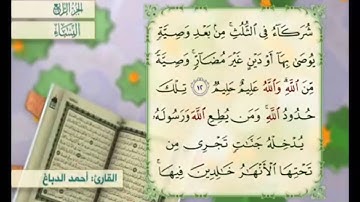 الجزء الرابع
النساء
شُرَكَآءُ فِى ٱلثُّلُثِ ۚ مِنۢ بَعْدِ وَصِيَّةٍ
يُوصَىٰ بِهَآ أَوْ دَيْنٍ غَيْرَ مُضَآرٍّ ۚ وَصِيَّةً
مِّنَ ٱللَّهِ ۗ وَٱللَّهُ عَلِيمٌ حَلِيمٌ ١٢ تِلْكَ
حُدُودُ ٱللَّهِ ۚ وَمَن يُطِعِ ٱللَّهَ وَرَسُولَهُۥ
يُدْخِلْهُ جَنَّٰتٍ تَجْرِى مِن
تَحْتِهَا ٱلْأَنْهَٰرُ خَٰلِدِينَ فِيهَا ۚ
القارئ: أحمد الدباغ